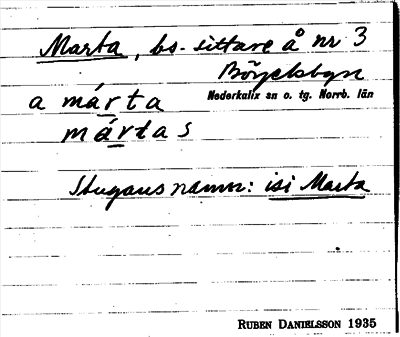 Marta, bs. sittare å nr 3
Börjelsbyn
Nederkalix sn o. tg. Norrb. län
a márta
mártas
Stugans namn: isi Marta
RUBEN DANIELSSON 1935